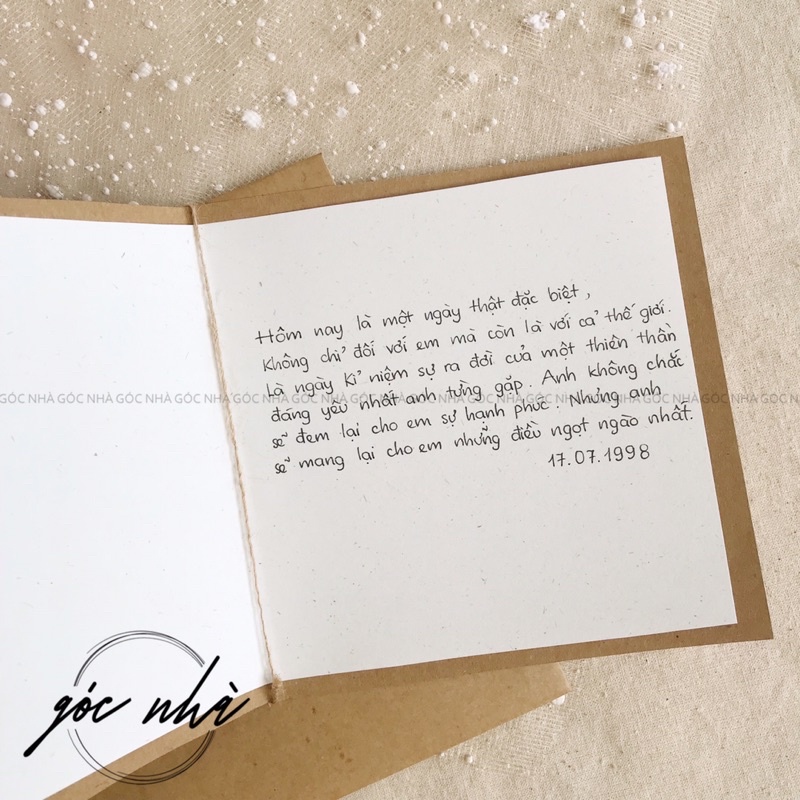 Hôm nay là một ngày thật đặc biệt,
không chỉ đối với em mà còn là với cả thế giới.
Là ngày kỉ niệm sự ra đời của một thiên thần
đáng yêu nhất anh từng gặp. Anh không chắc
sẽ đem lại cho em sự hạnh phúc. Nhưng anh
sẽ mang lại cho em những điều ngọt ngào nhất.
17.07.1998
GÓC NHÀ GÓC NHÀ GÓC NHÀ GÓC NHÀ GÓC NHÀ GÓC NHÀ GÓC NHÀ GÓC NHÀ GÓC NHÀ GÓC NHÀ GÓC NHÀ GÓC NHÀ GÓC N
góc nhà